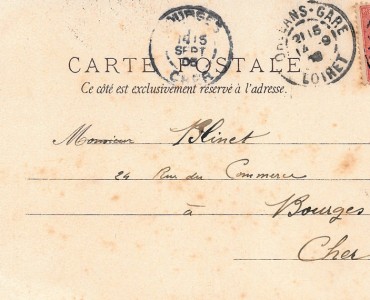 BOURGES
15
SEPT
CHER
ORLEANS-GARE
21 15
14 - 9
LOIRET
CARTE POSTALE
Ce côté est exclusivement réservé à l'adresse.
Monsieur Blinet
24 Rue du Commerce
à
Bourges
Cher